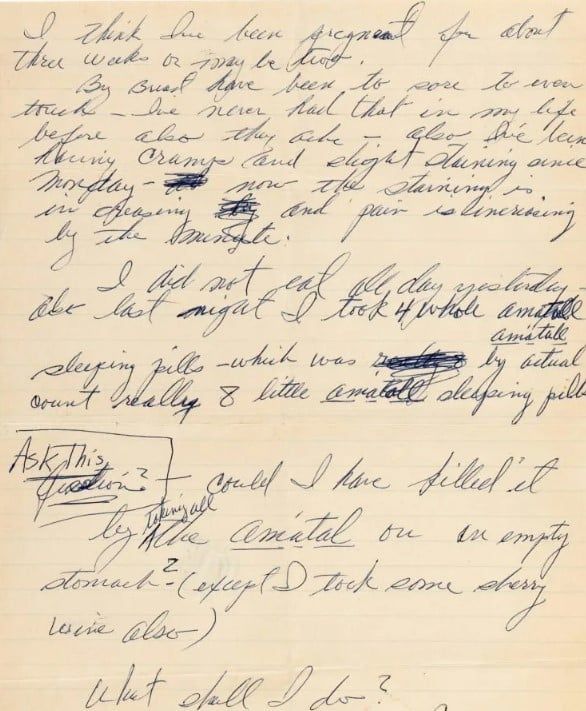 I think I've been pregnant for about
three weeks or may be two.
My Breast have been to sore to even
touch – I've never had that in my life
before also they ache – also I've been
having cramps and slight staining since
Monday – now the staining is
increasing and pain is increasing
by the minute.
I did not eat all day yesterday –
also last night I took 4 whole amatall
amatall
sleeping pills – which was by actual
count really 8 little amatall sleeping pills
Ask This
question? – could I have killed it
by taking all the amatal on an empty
stomach? – (except I took some sherry
wine also)
What shall I do?